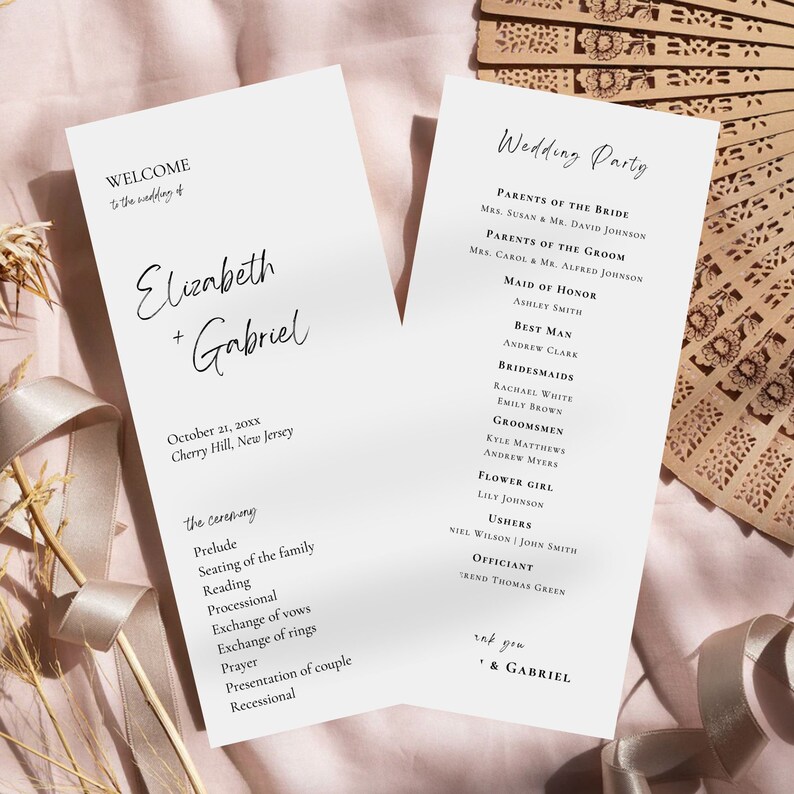 WELCOME
to the wedding of
Elizabeth
+ Gabriel
October 21, 20xx
Cherry Hill, New Jersey
the ceremony
Prelude
Seating of the family
Reading
Processional
Exchange of vows
Exchange of rings
Prayer
Presentation of couple
Recessional
Wedding Party
Parents of the Bride
Mrs. Susan & Mr. David Johnson
Parents of the Groom
Mrs. Carol & Mr. Alfred Johnson
Maid of Honor
Ashley Smith
Best Man
Andrew Clark
Bridesmaids
Rachael White
Emily Brown
Groomsmen
Kyle Matthews
Andrew Myers
Flower girl
Lily Johnson
Ushers
niel Wilson | John Smith
Officiant
rend Thomas Green
ank you
& Gabriel